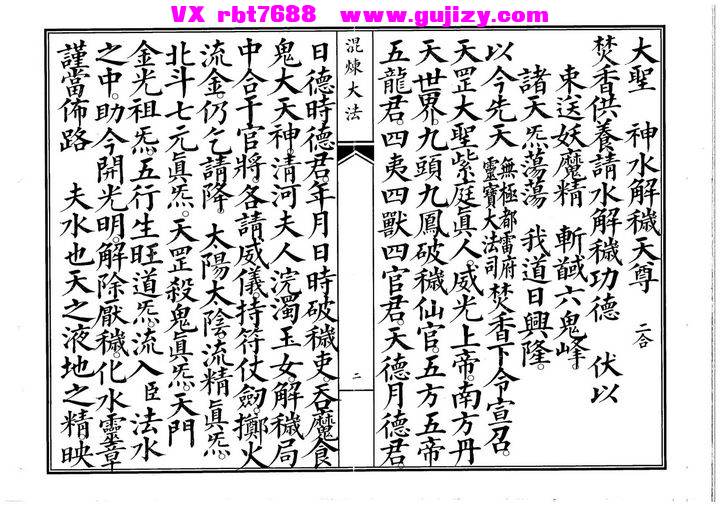 VX rbt7688 www.gujizy.com
大聖　神水解穢天尊　二合
焚香供養請水解穢功德　伏以
東送妖魔精　斬馘六鬼峰
諸天炁蕩蕩　我道日興隆。
以今先天無極都雷府靈寶大法司焚香下令宣召。
天罡大聖紫庭真人。威光上帝。南方丹
天世界。九頭九鳳破穢仙官。五方五帝
五龍君。四夷四獸四官君。天德月德君。
混煉大法
二
日德時德君。年月日時破穢吏。吞魔食
鬼大天神。清河夫人浣濁玉女。解穢局
中合干官將各請威儀持符仗劒。擲火
流金仍乞請降。太陽太陰流精眞炁
北斗七元眞炁。天罡殺鬼眞炁。天門
金光祖炁。五行生旺道炁。流入臣法水
之中。助今開光明。解除厭穢。化水靈章
謹當佈路　夫水也天之液地之精。映